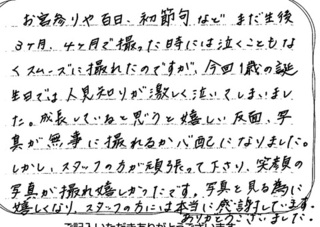 お宮参りや百日、初節句など まだ生後
3ヶ月、4ヶ月で撮った時には泣くこともな
くスムーズに撮れたのですが、今回1歳の誕
生日では人見知りが激しく泣いてしまいまし
た。成長していると思うと嬉しい反面、写
真が無事に撮れるか心配になりました。
しかし、スタッフの方が頑張って下さり、笑顔の
写真が撮れ嬉しかったです。写真を見る為に
嬉しくなり、スタッフの方には本当に感謝しています。
ありがとうございました。
ご記入いただきありがとうございます